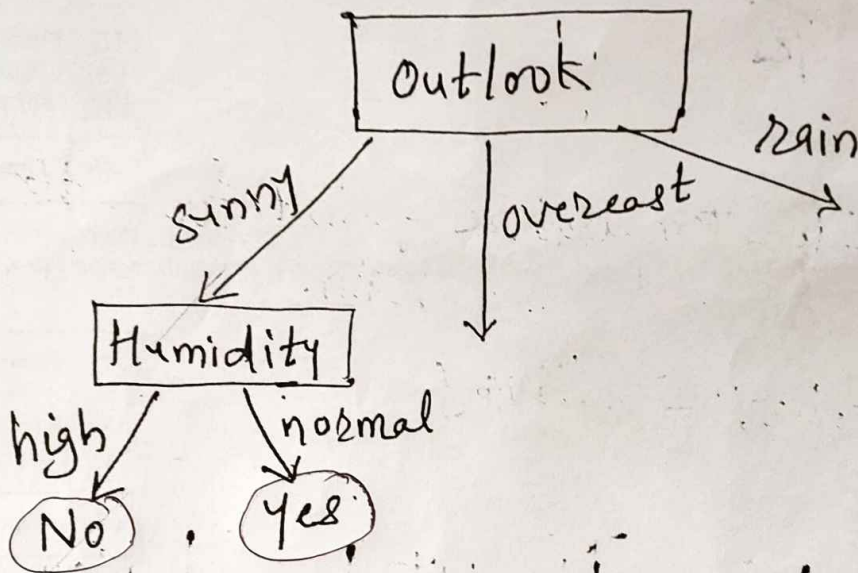 Outlook
sunny
overcast
rain
Humidity
high
normal
No
yes